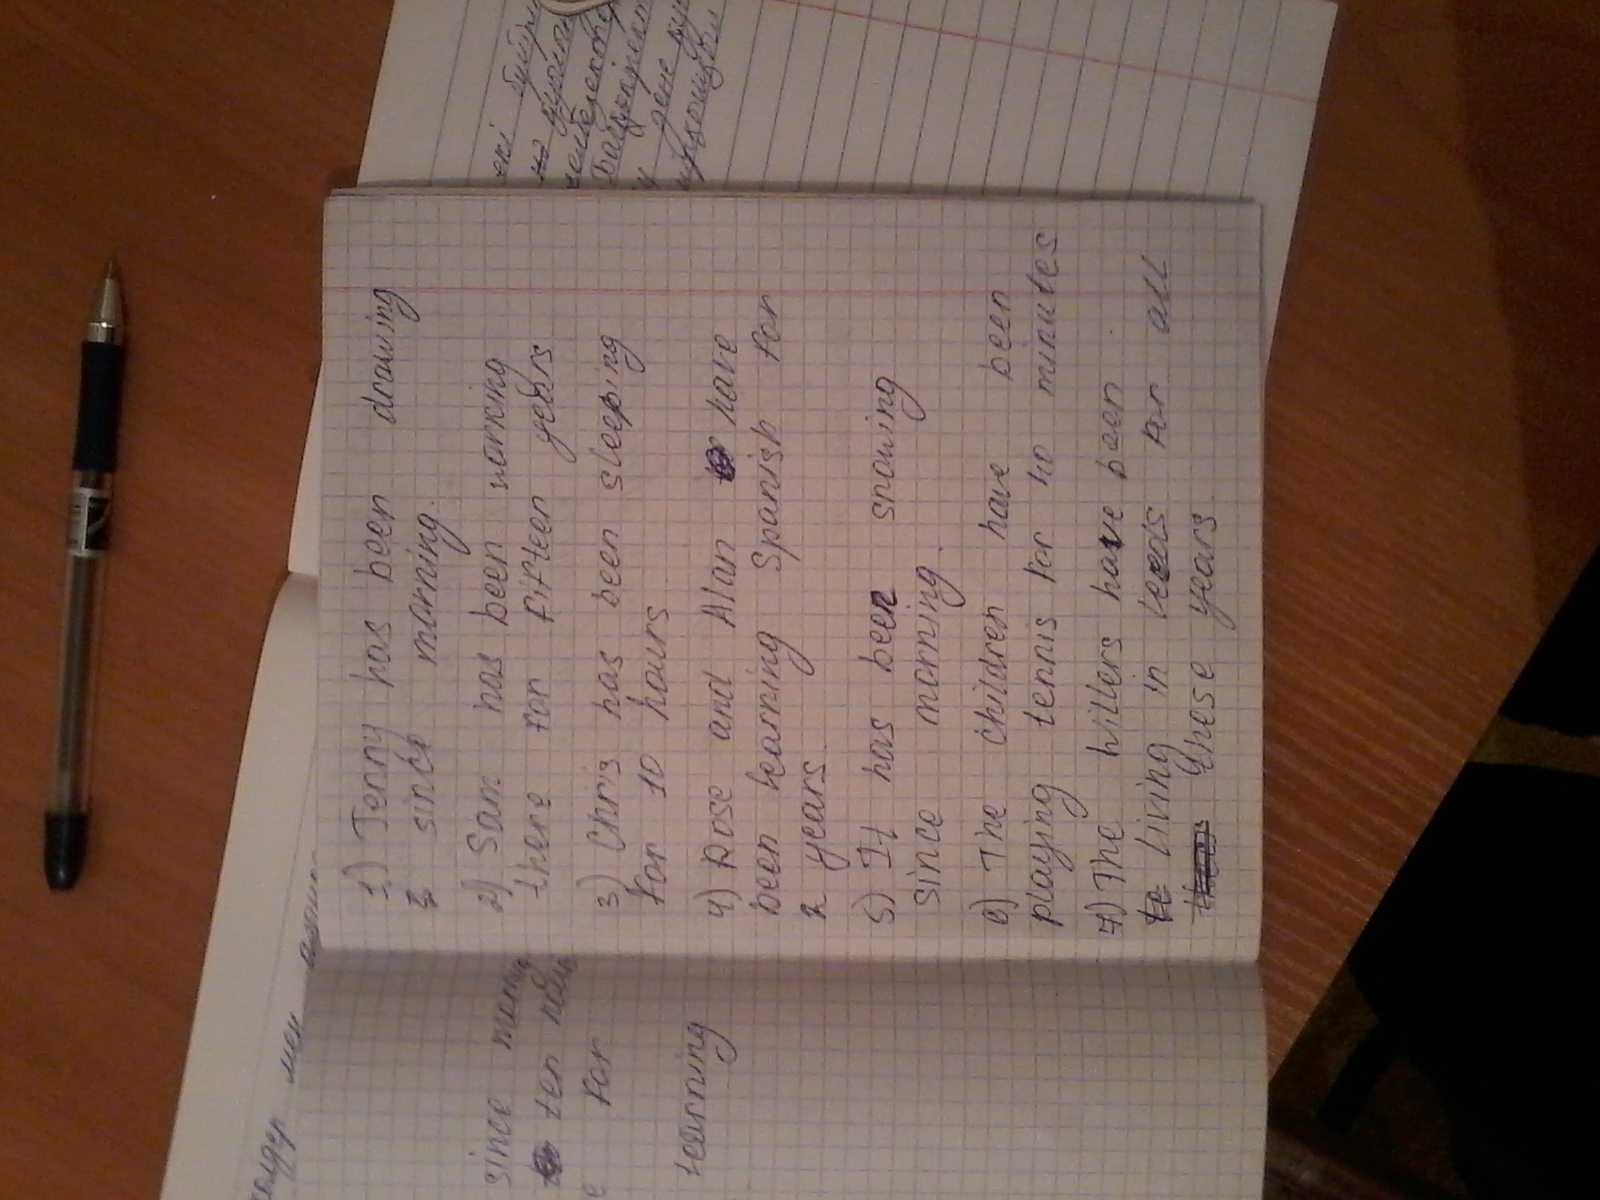 1) Jenny has been drawing
since morning.
2) Sam has been working
there for fifteen years
3) Chris has been sleeping
for 10 hours
4) Rose and Alan have
been learning Spanish for
2 years
5) It has been snowing
since morning.
6) The children have been
playing tennis for 40 minutes
7) The hillers have been
living in leeds for all
these years
since
ten
for
learning
мен